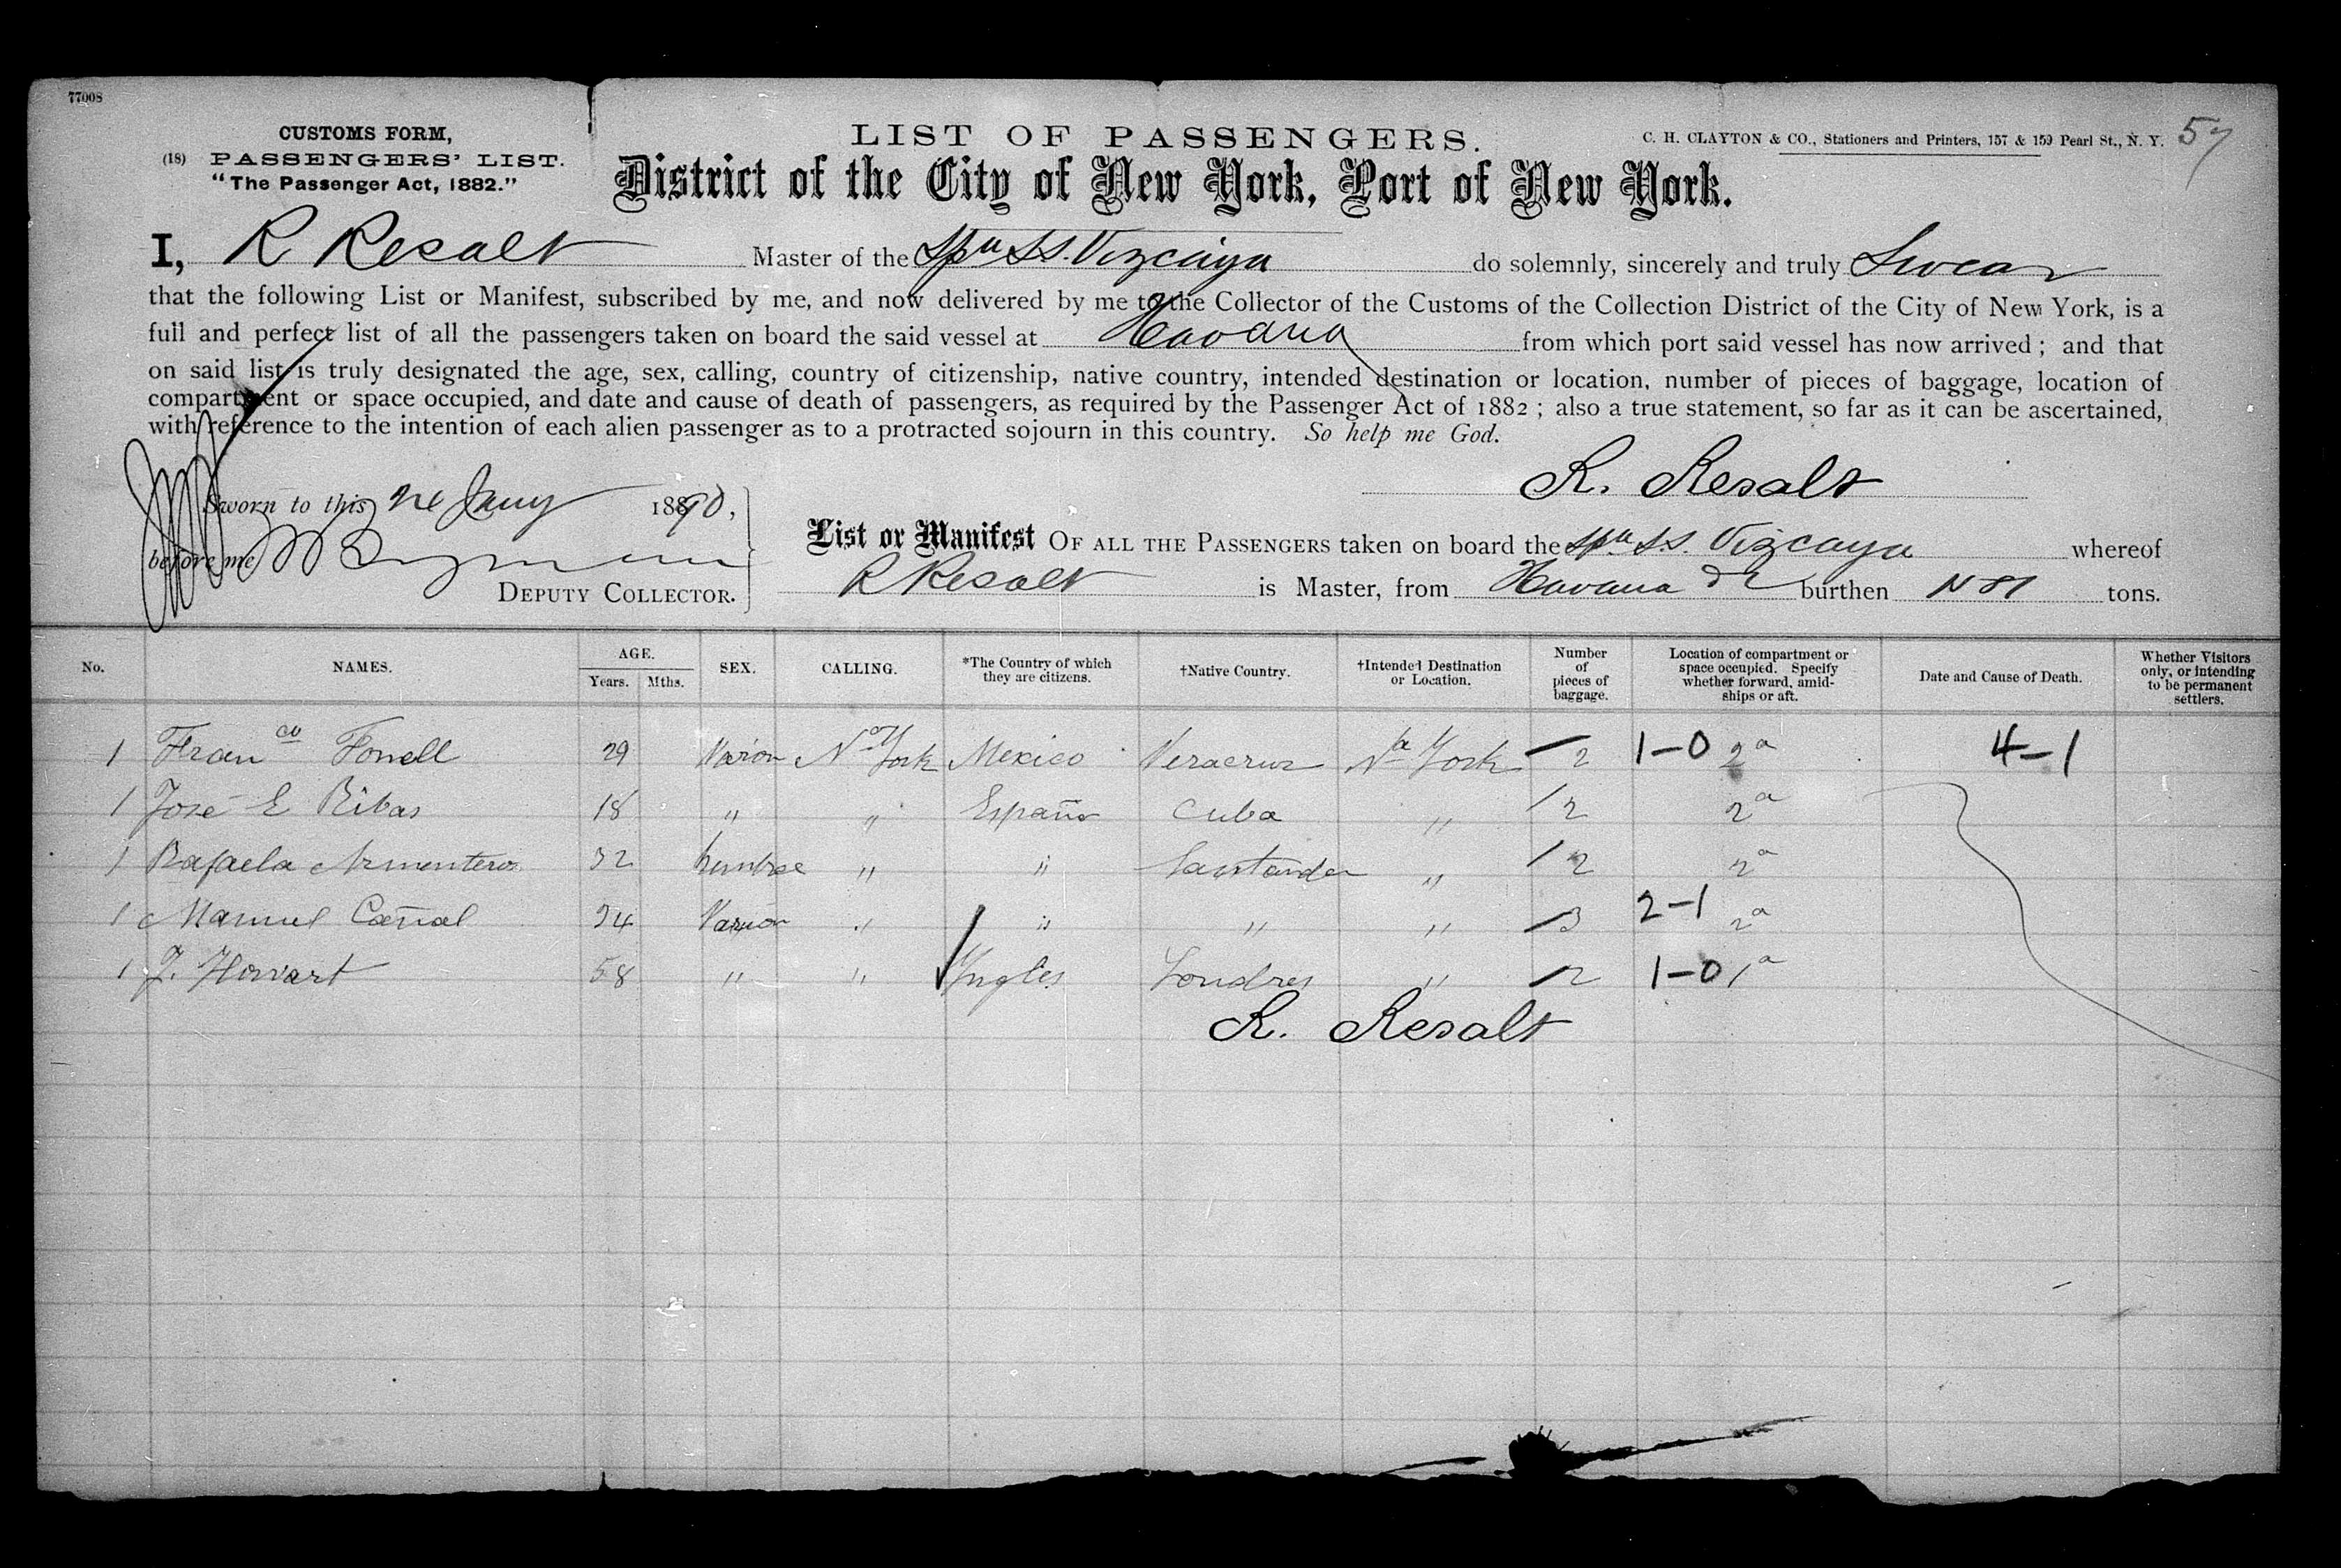 77008
CUSTOMS FORM,
(18) PASSENGERS' LIST.
"The Passenger Act, 1882."
LIST OF PASSENGERS.
C. H. CLAYTON & CO., Stationers and Printers, 157 & 159 Pearl St., N. Y. 57
District of the City of New York, Port of New York.
I, R Resalt Master of the Spn SS. Vizcaya do solemnly, sincerely and truly Swear
that the following List or Manifest, subscribed by me, and now delivered by me to the Collector of the Customs of the Collection District of the City of New York, is a
full and perfect list of all the passengers taken on board the said vessel at Havana from which port said vessel has now arrived; and that
on said list is truly designated the age, sex, calling, country of citizenship, native country, intended destination or location, number of pieces of baggage, location of
compartment or space occupied, and date and cause of death of passengers, as required by the Passenger Act of 1882; also a true statement, so far as it can be ascertained,
with reference to the intention of each alien passenger as to a protracted sojourn in this country. So help me God.
R. Resalt
Sworn to this Jany 1890,
before me
DEPUTY COLLECTOR.
List or Manifest OF ALL THE PASSENGERS taken on board the Spn S.S. Vizcaya whereof
R Resalt is Master, from Havana burthen tons.
No. NAMES. AGE. Years. Mths. SEX. CALLING. *The Country of which they are citizens. †Native Country. †Intended Destination or Location. Number of pieces of baggage. Location of compartment or space occupied. Specify whether forward, amid-ships or aft. Date and Cause of Death. Whether Visitors only, or intending to be permanent settlers.
1 Franco 29 Varon Na York Mexico Veracruz Na York 2 1-0 2a 4-1
1 José E Ribas 18 " " Español Cuba " 2 2a
1 Rafaela Armenteros 32 hembra " " Santander " 2 2a
1 Manuel Cañal 34 Varon " " " " 3 2-1 2a
1 J. Howart 58 " " Ingles Londres " 2 1-0 1a
R. Resalt